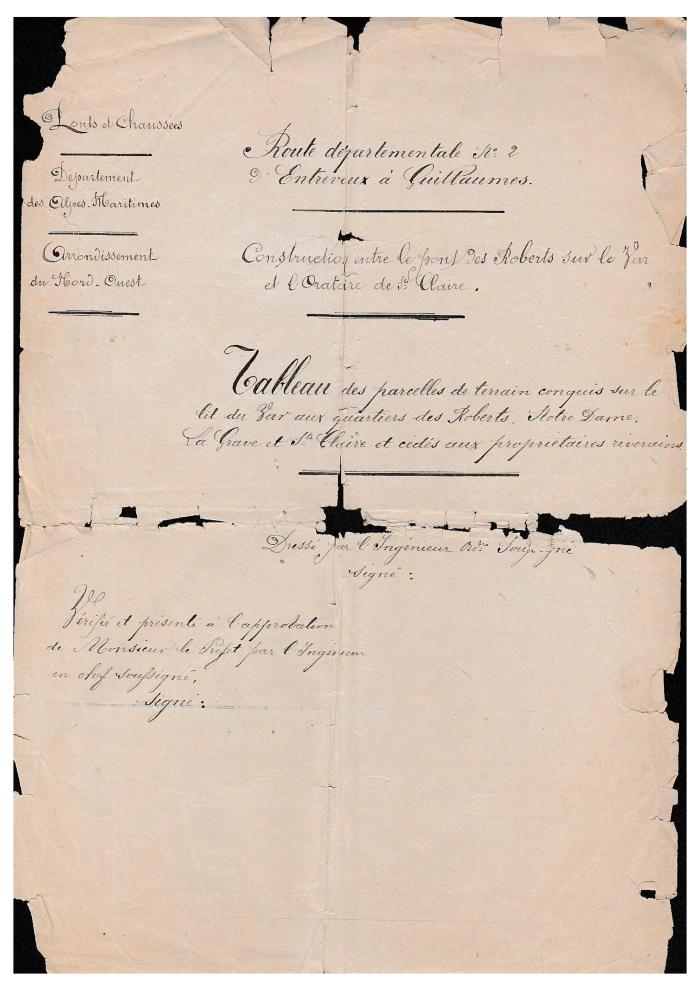 Ponts et Chaussées
Département
des Alpes-Maritimes
Arrondissement
du Nord-Ouest
Route départementale No 2
D'Entrevaux à Guillaumes.
Construction entre le pont des Roberts sur le Var
et l'Oratoire de Ste Claire.
Tableau des parcelles de terrain conquis sur le
lit du Var aux quartiers des Roberts, Notre Dame,
La Grave et Ste Claire et cédés aux propriétaires riverains
Dressé par l'Ingénieur Ordre Soussigné
Signé :
Vérifié et présenté à l'approbation
de Monsieur le Préfet par l'Ingénieur
en chef soussigné,
Signé :